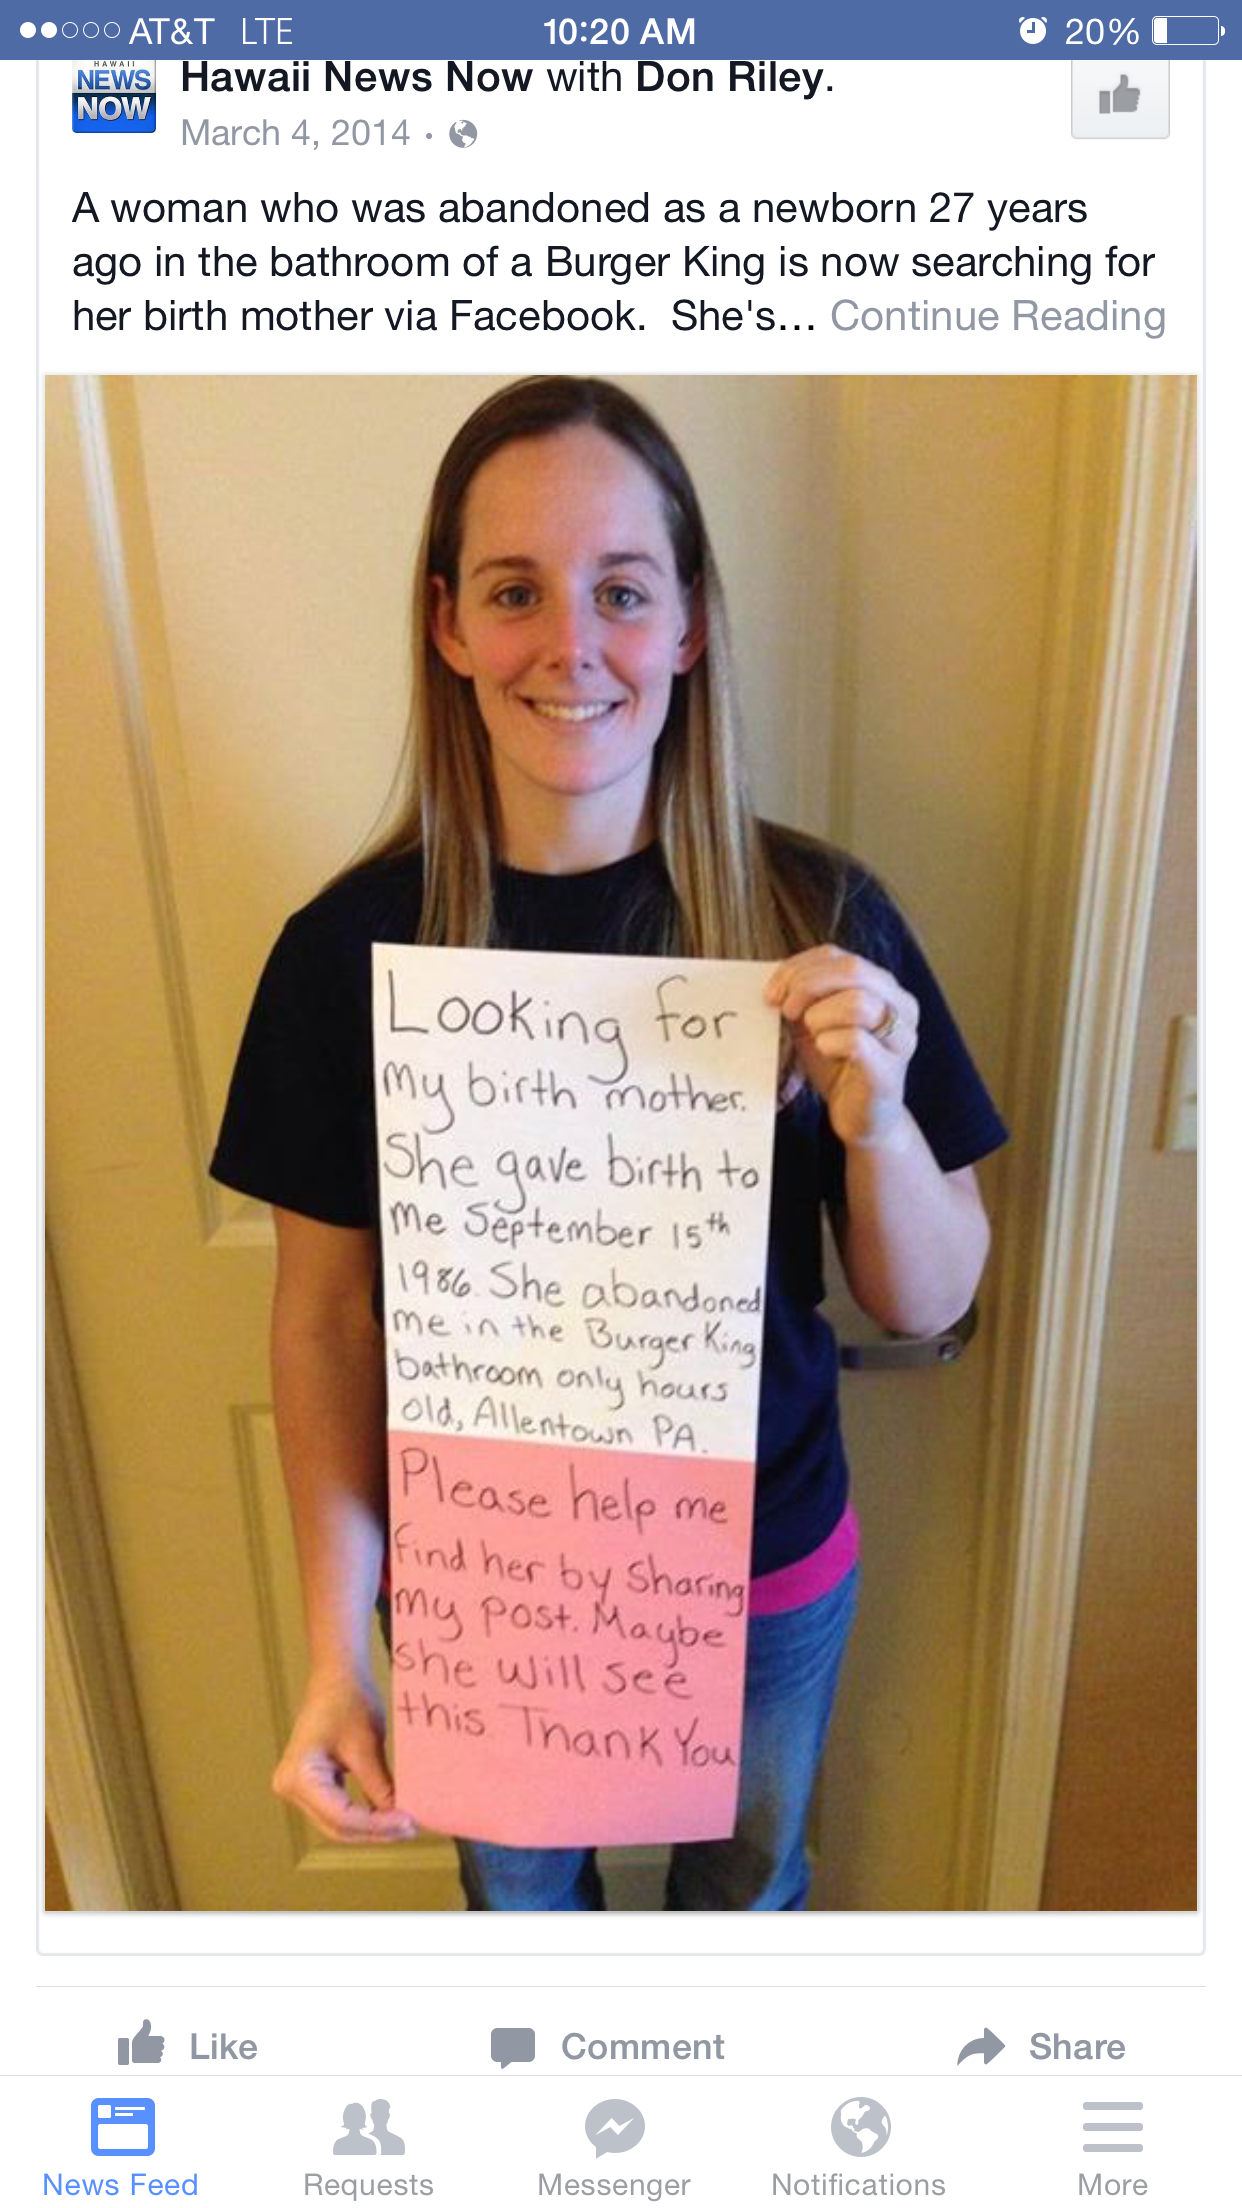 AT&T LTE 10:20 AM 20%
HAWAII
NEWS
NOW
Hawaii News Now with Don Riley.
March 4, 2014 ·
A woman who was abandoned as a newborn 27 years
ago in the bathroom of a Burger King is now searching for
her birth mother via Facebook. She's... Continue Reading
Looking for
my birth mother.
She gave birth to
me September 15th
1986. She abandoned
me in the Burger King
bathroom only hours
old, Allentown PA.
Please help me
find her by sharing
my post. Maybe
she will see
this. Thank You
Like Comment Share
News Feed Requests Messenger Notifications More